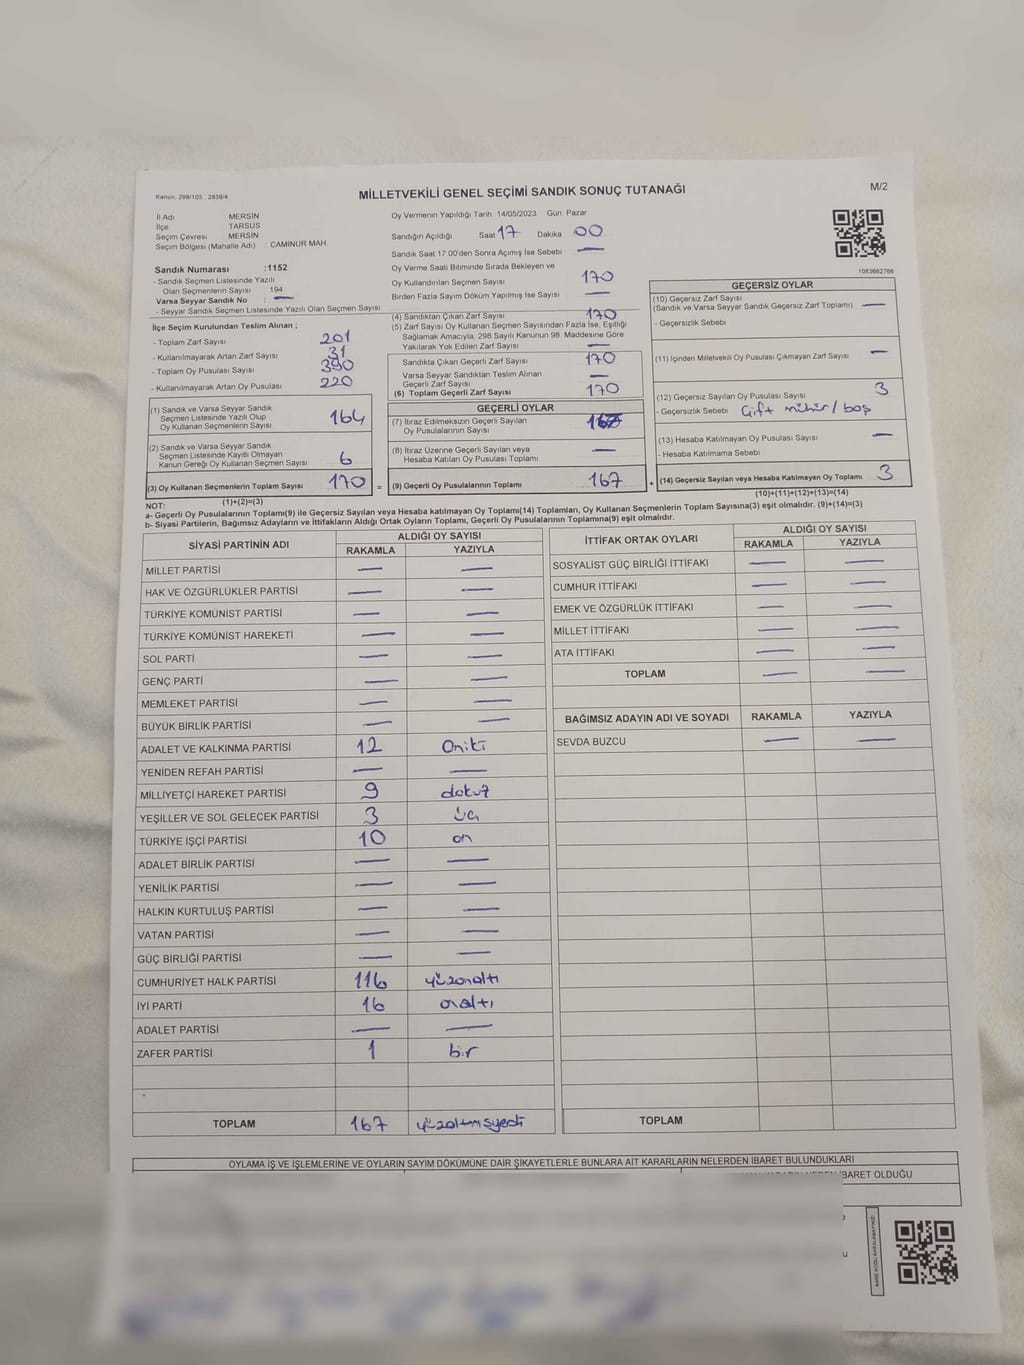 Kanun: 298/105 ; 2839/4
MİLLETVEKİLİ GENEL SEÇİMİ SANDIK SONUÇ TUTANAĞI
M/2
İl Adı MERSİN
İlçe TARSUS
Seçim Çevresi MERSİN
Seçim Bölgesi (Mahalle Adı) CAMİNUR MAH.
Sandık Numarası :1152
- Sandık Seçmen Listesinde Yazılı
Olan Seçmenlerin Sayısı 194
Varsa Seyyar Sandık No : —
- Seyyar Sandık Seçmen Listesinde Yazılı Olan Seçmen Sayısı
İlçe Seçim Kurulundan Teslim Alınan ;
- Toplam Zarf Sayısı 201
- Kullanılmayarak Artan Zarf Sayısı 31
- Toplam Oy Pusulası Sayısı 390
- Kullanılmayarak Artan Oy Pusulası 220
(1) Sandık ve Varsa Seyyar Sandık
Seçmen Listesinde Yazılı Olup
Oy Kullanan Seçmenlerin Sayısı 164
(2) Sandık ve Varsa Seyyar Sandık
Seçmen Listesinde Kayıtlı Olmayan
Kanun Gereği Oy Kullanan Seçmen Sayısı 6
(3) Oy Kullanan Seçmenlerin Toplam Sayısı 170 =
(1)+(2)=(3)
Oy Vermenin Yapıldığı Tarih 14/05/2023 Gün Pazar
Sandığın Açıldığı Saat 17 Dakika 00
Sandık Saat 17.00'den Sonra Açımış İse Sebebi —
Oy Verme Saati Bitiminde Sırada Bekleyen ve
Oy Kullandırılan Seçmen Sayısı 170
Birden Fazla Sayım Döküm Yapılmış İse Sayısı —
(4) Sandıktan Çıkan Zarf Sayısı 170
(5) Zarf Sayısı Oy Kullanan Seçmen Sayısından Fazla İse, Eşitliği
Sağlamak Amacıyla; 298 Sayılı Kanunun 98. Maddesine Göre
Yakılarak Yok Edilen Zarf Sayısı —
Sandıkta Çıkan Geçerli Zarf Sayısı 170
Varsa Seyyar Sandıktan Teslim Alınan
Geçerli Zarf Sayısı —
(6) Toplam Geçerli Zarf Sayısı 170
GEÇERLİ OYLAR
(7) İtiraz Edilmeksizin Geçerli Sayılan
Oy Pusulalarının Sayısı
(8) İtiraz Üzerine Geçerli Sayılan veya
Hesaba Katılan Oy Pusulası Toplamı —
(9) Geçerli Oy Pusulalarının Toplamı 167 +
1083662766
GEÇERSİZ OYLAR
(10) Geçersiz Zarf Sayısı
(Sandık ve Varsa Seyyar Sandık Geçersiz Zarf Toplamı) —
- Geçersizlik Sebebi
(11) İçinden Milletvekili Oy Pusulası Çıkmayan Zarf Sayısı —
(12) Geçersiz Sayılan Oy Pusulası Sayısı 3
- Geçersizlik Sebebi Çift mühür / boş
(13) Hesaba Katılmayan Oy Pusulası Sayısı —
- Hesaba Katılmama Sebebi
(14) Geçersiz Sayılan veya Hesaba Katılmayan Oy Toplamı 3
(10)+(11)+(12)+(13)=(14)
NOT:
a- Geçerli Oy Pusulalarının Toplamı(9) ile Geçersiz Sayılan veya Hesaba katılmayan Oy Toplamı(14) Toplamları, Oy Kullanan Seçmenlerin Toplam Sayısına(3) eşit olmalıdır. (9)+(14)=(3)
b- Siyasi Partilerin, Bağımsız Adayların ve İttifakların Aldığı Ortak Oyların Toplamı, Geçerli Oy Pusulalarının Toplamına(9) eşit olmalıdır.
SİYASİ PARTİNİN ADI ALDIĞI OY SAYISI
RAKAMLA YAZIYLA
MİLLET PARTİSİ — —
HAK VE ÖZGÜRLÜKLER PARTİSİ — —
TÜRKİYE KOMÜNİST PARTİSİ — —
TÜRKİYE KOMÜNİST HAREKETİ — —
SOL PARTİ — —
GENÇ PARTİ — —
MEMLEKET PARTİSİ — —
BÜYÜK BİRLİK PARTİSİ — —
ADALET VE KALKINMA PARTİSİ 12 Oniki
YENİDEN REFAH PARTİSİ — —
MİLLİYETÇİ HAREKET PARTİSİ 9 dokuz
YEŞİLLER VE SOL GELECEK PARTİSİ 3 üç
TÜRKİYE İŞÇİ PARTİSİ 10 on
ADALET BİRLİK PARTİSİ — —
YENİLİK PARTİSİ — —
HALKIN KURTULUŞ PARTİSİ — —
VATAN PARTİSİ — —
GÜÇ BİRLİĞİ PARTİSİ — —
CUMHURİYET HALK PARTİSİ 116 yüzonaltı
İYİ PARTİ 16 onaltı
ADALET PARTİSİ — —
ZAFER PARTİSİ 1 bir
TOPLAM 167 yüzaltmışyedi
İTTİFAK ORTAK OYLARI ALDIĞI OY SAYISI
RAKAMLA YAZIYLA
SOSYALİST GÜÇ BİRLİĞİ İTTİFAKI — —
CUMHUR İTTİFAKI — —
EMEK VE ÖZGÜRLÜK İTTİFAKI — —
MİLLET İTTİFAKI — —
ATA İTTİFAKI — —
TOPLAM — —
BAĞIMSIZ ADAYIN ADI VE SOYADI RAKAMLA YAZIYLA
SEVDA BUZCU — —
TOPLAM
OYLAMA İŞ VE İŞLEMLERİNE VE OYLARIN SAYIM DÖKÜMÜNE DAİR ŞİKAYETLERLE BUNLARA AİT KARARLARIN NELERDEN İBARET BULUNDUKLARI
İBARET OLDUĞU
KARE KODU KARALAMAYINIZ!